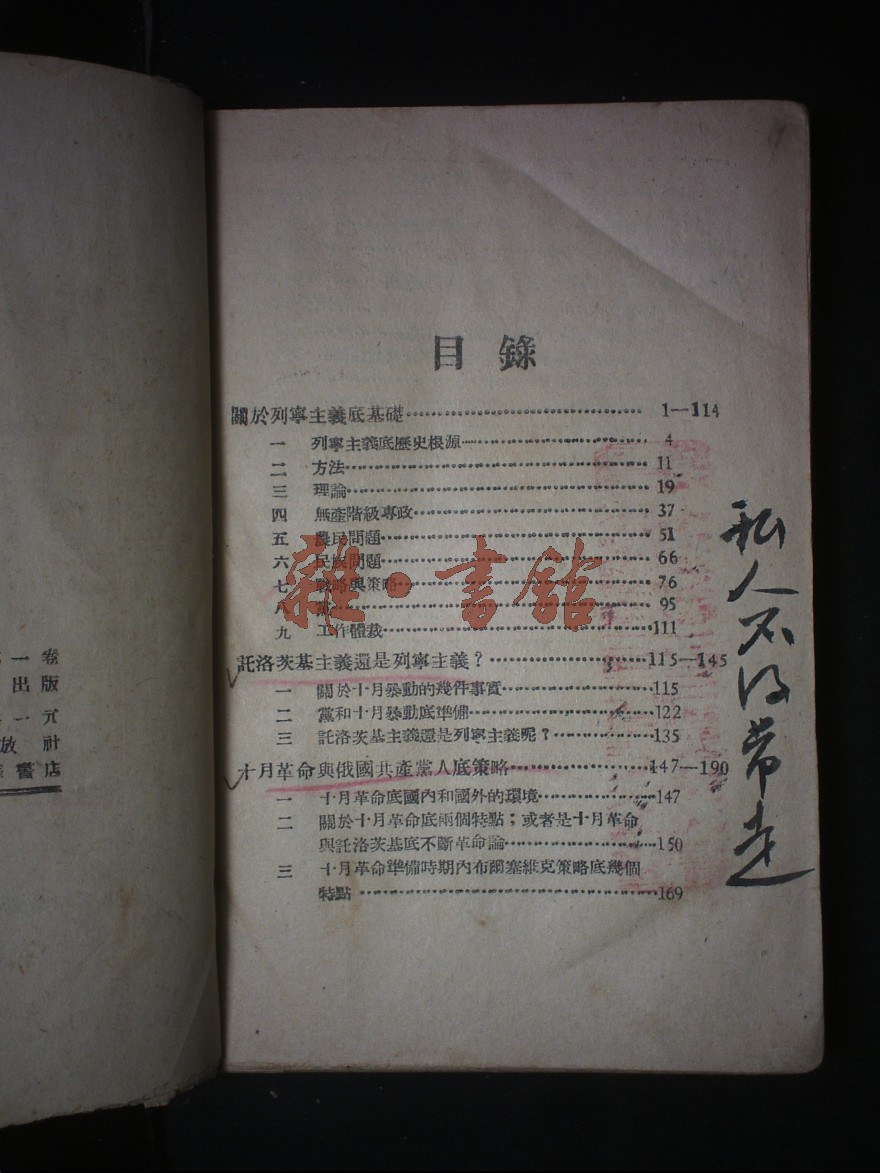 目錄
關於列寧主義底基礎 1—114
一 列寧主義底歷史根源 4
二 方法 11
三 理論 19
四 無產階級專政 37
五 農民問題 51
六 民族問題 66
七 戰略與策略 76
八 黨 95
九 工作體裁 111
託洛茨基主義還是列寧主義? 115—145
一 關於十月暴動的幾件事實 115
二 黨和十月暴動底準備 122
三 託洛茨基主義還是列寧主義呢? 135
十月革命與俄國共產黨人底策略 147—190
一 十月革命底國內和國外的環境 147
二 關於十月革命底兩個特點;或者是十月革命
與託洛茨基底不斷革命論 150
三 十月革命準備時期內布爾塞維克策略底幾個
特點 169
私人不得帶走
一卷
出版
一元
放社
書店
雜·書館